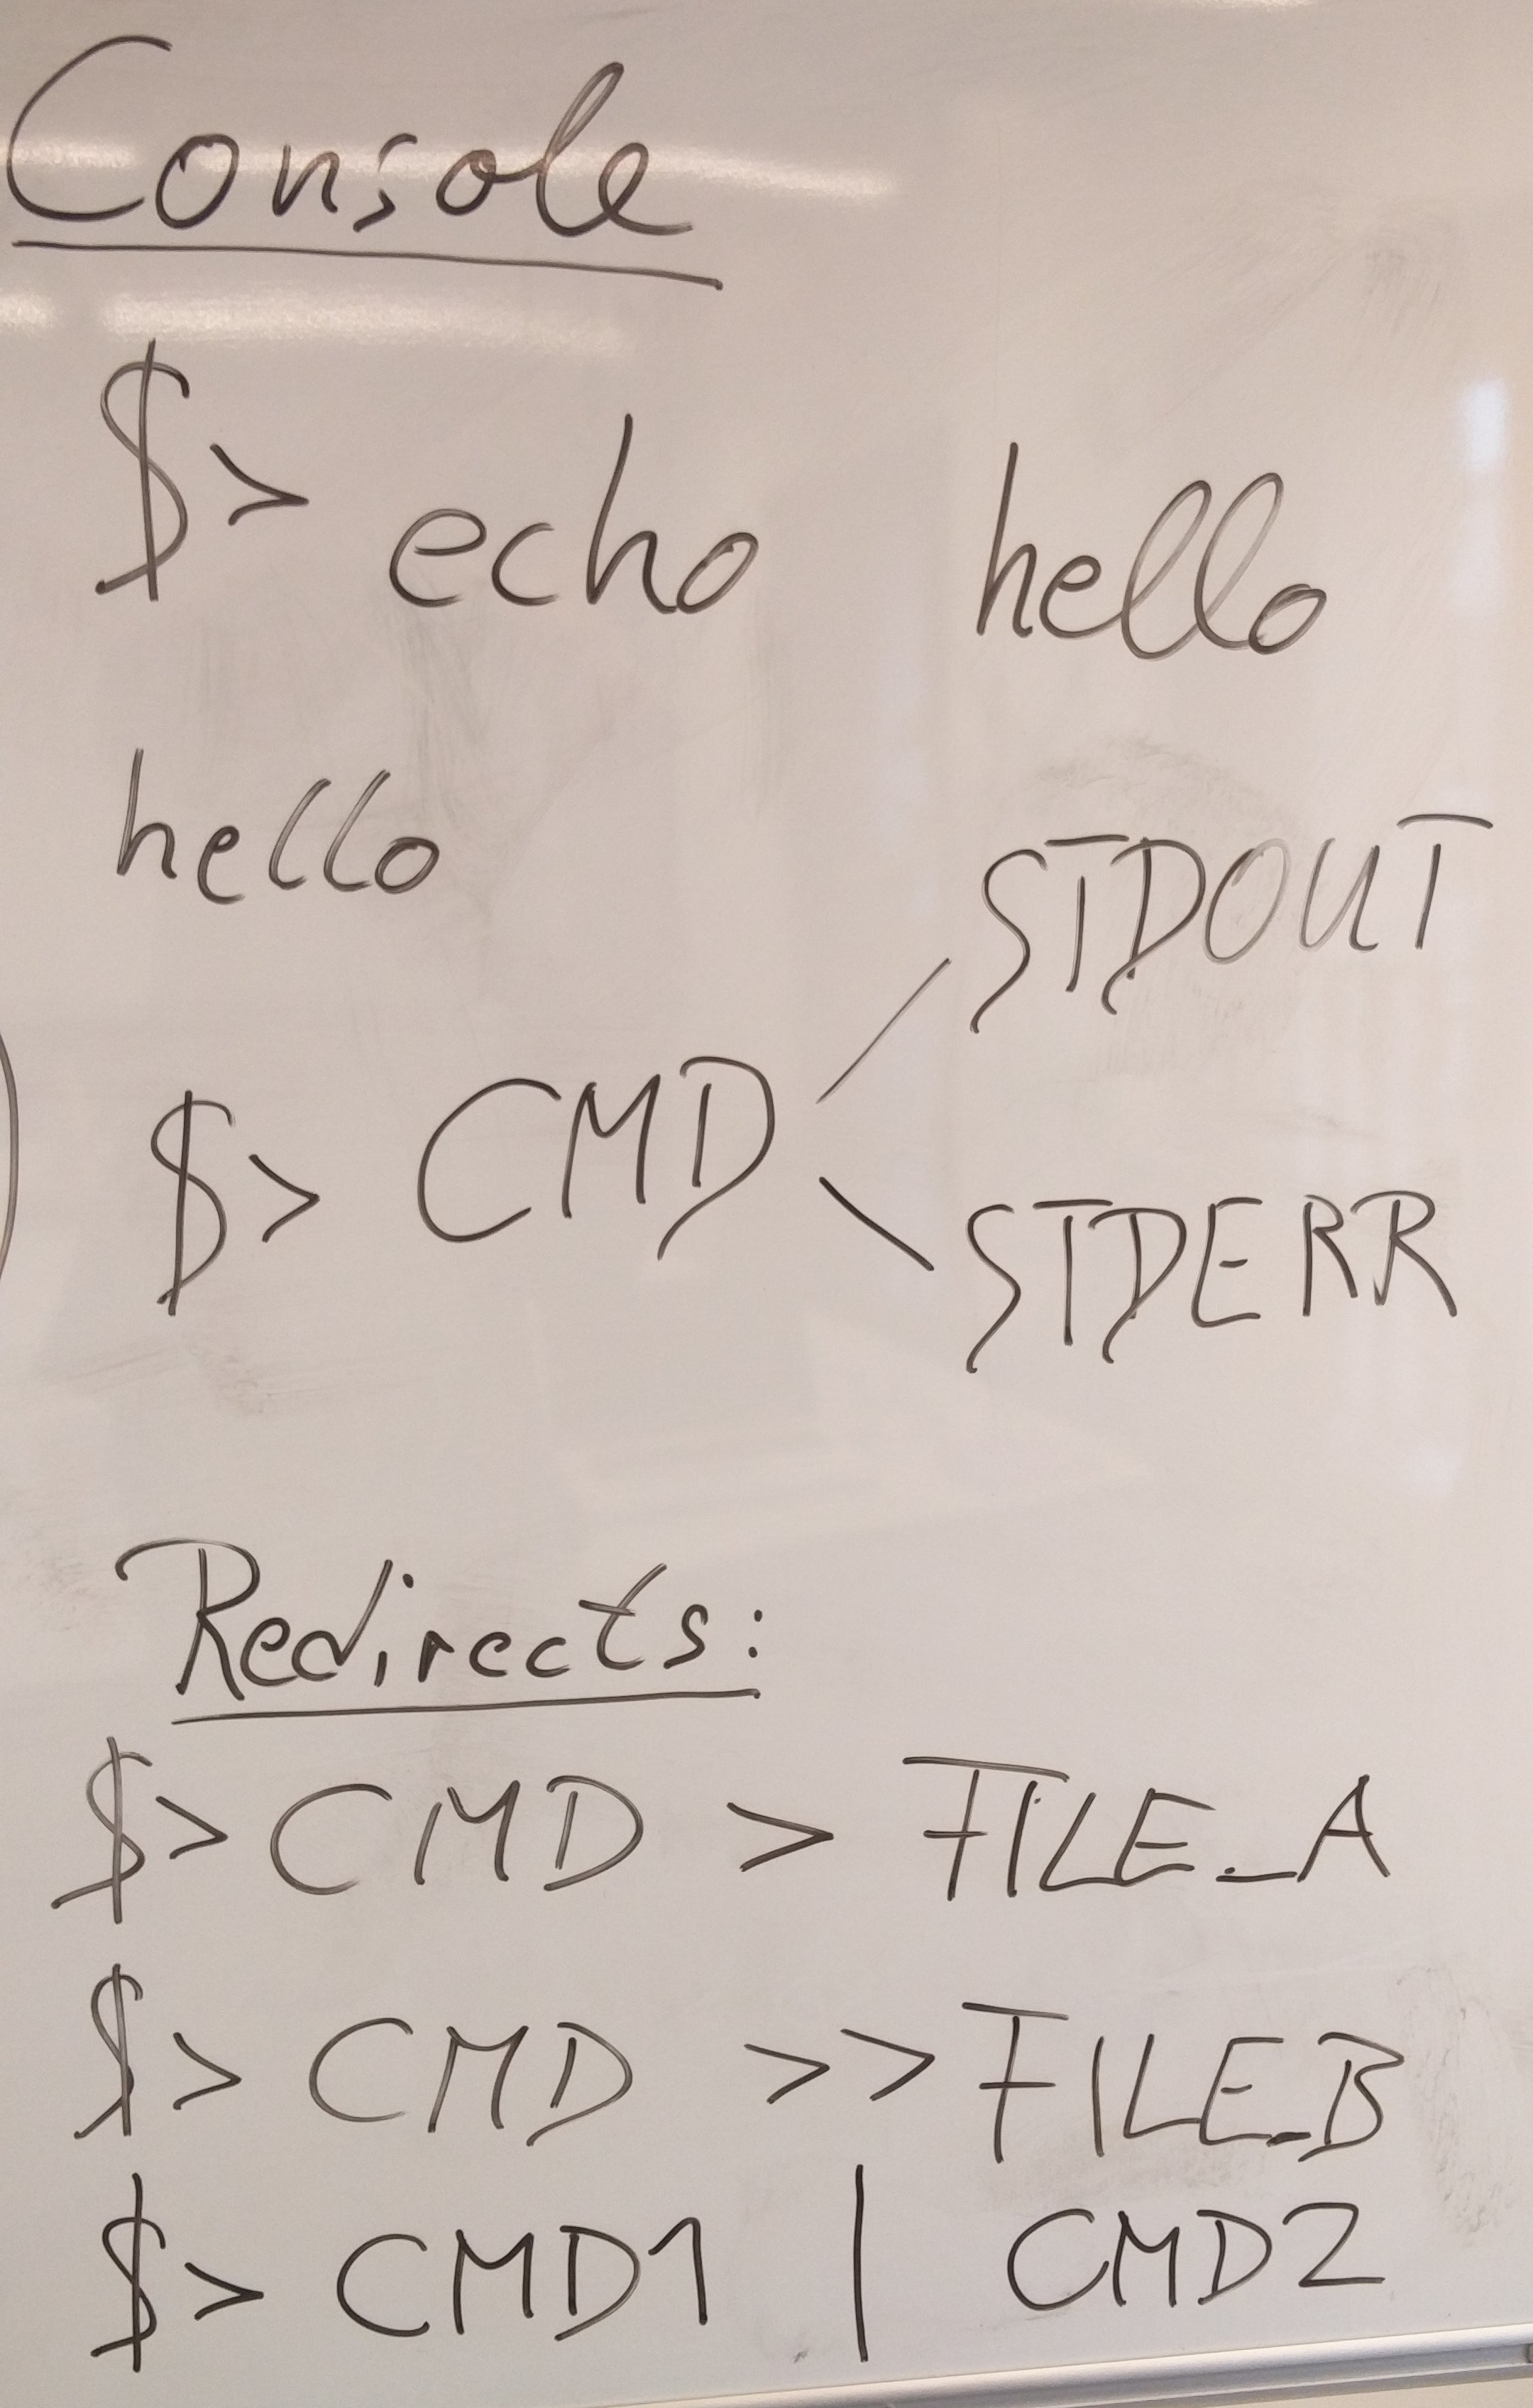 Console
$> echo hello
hello
STDOUT
$> CMD
STDERR
Redirects:
$> CMD > FILE_A
$> CMD >> FILE_B
$> CMD1 | CMD2